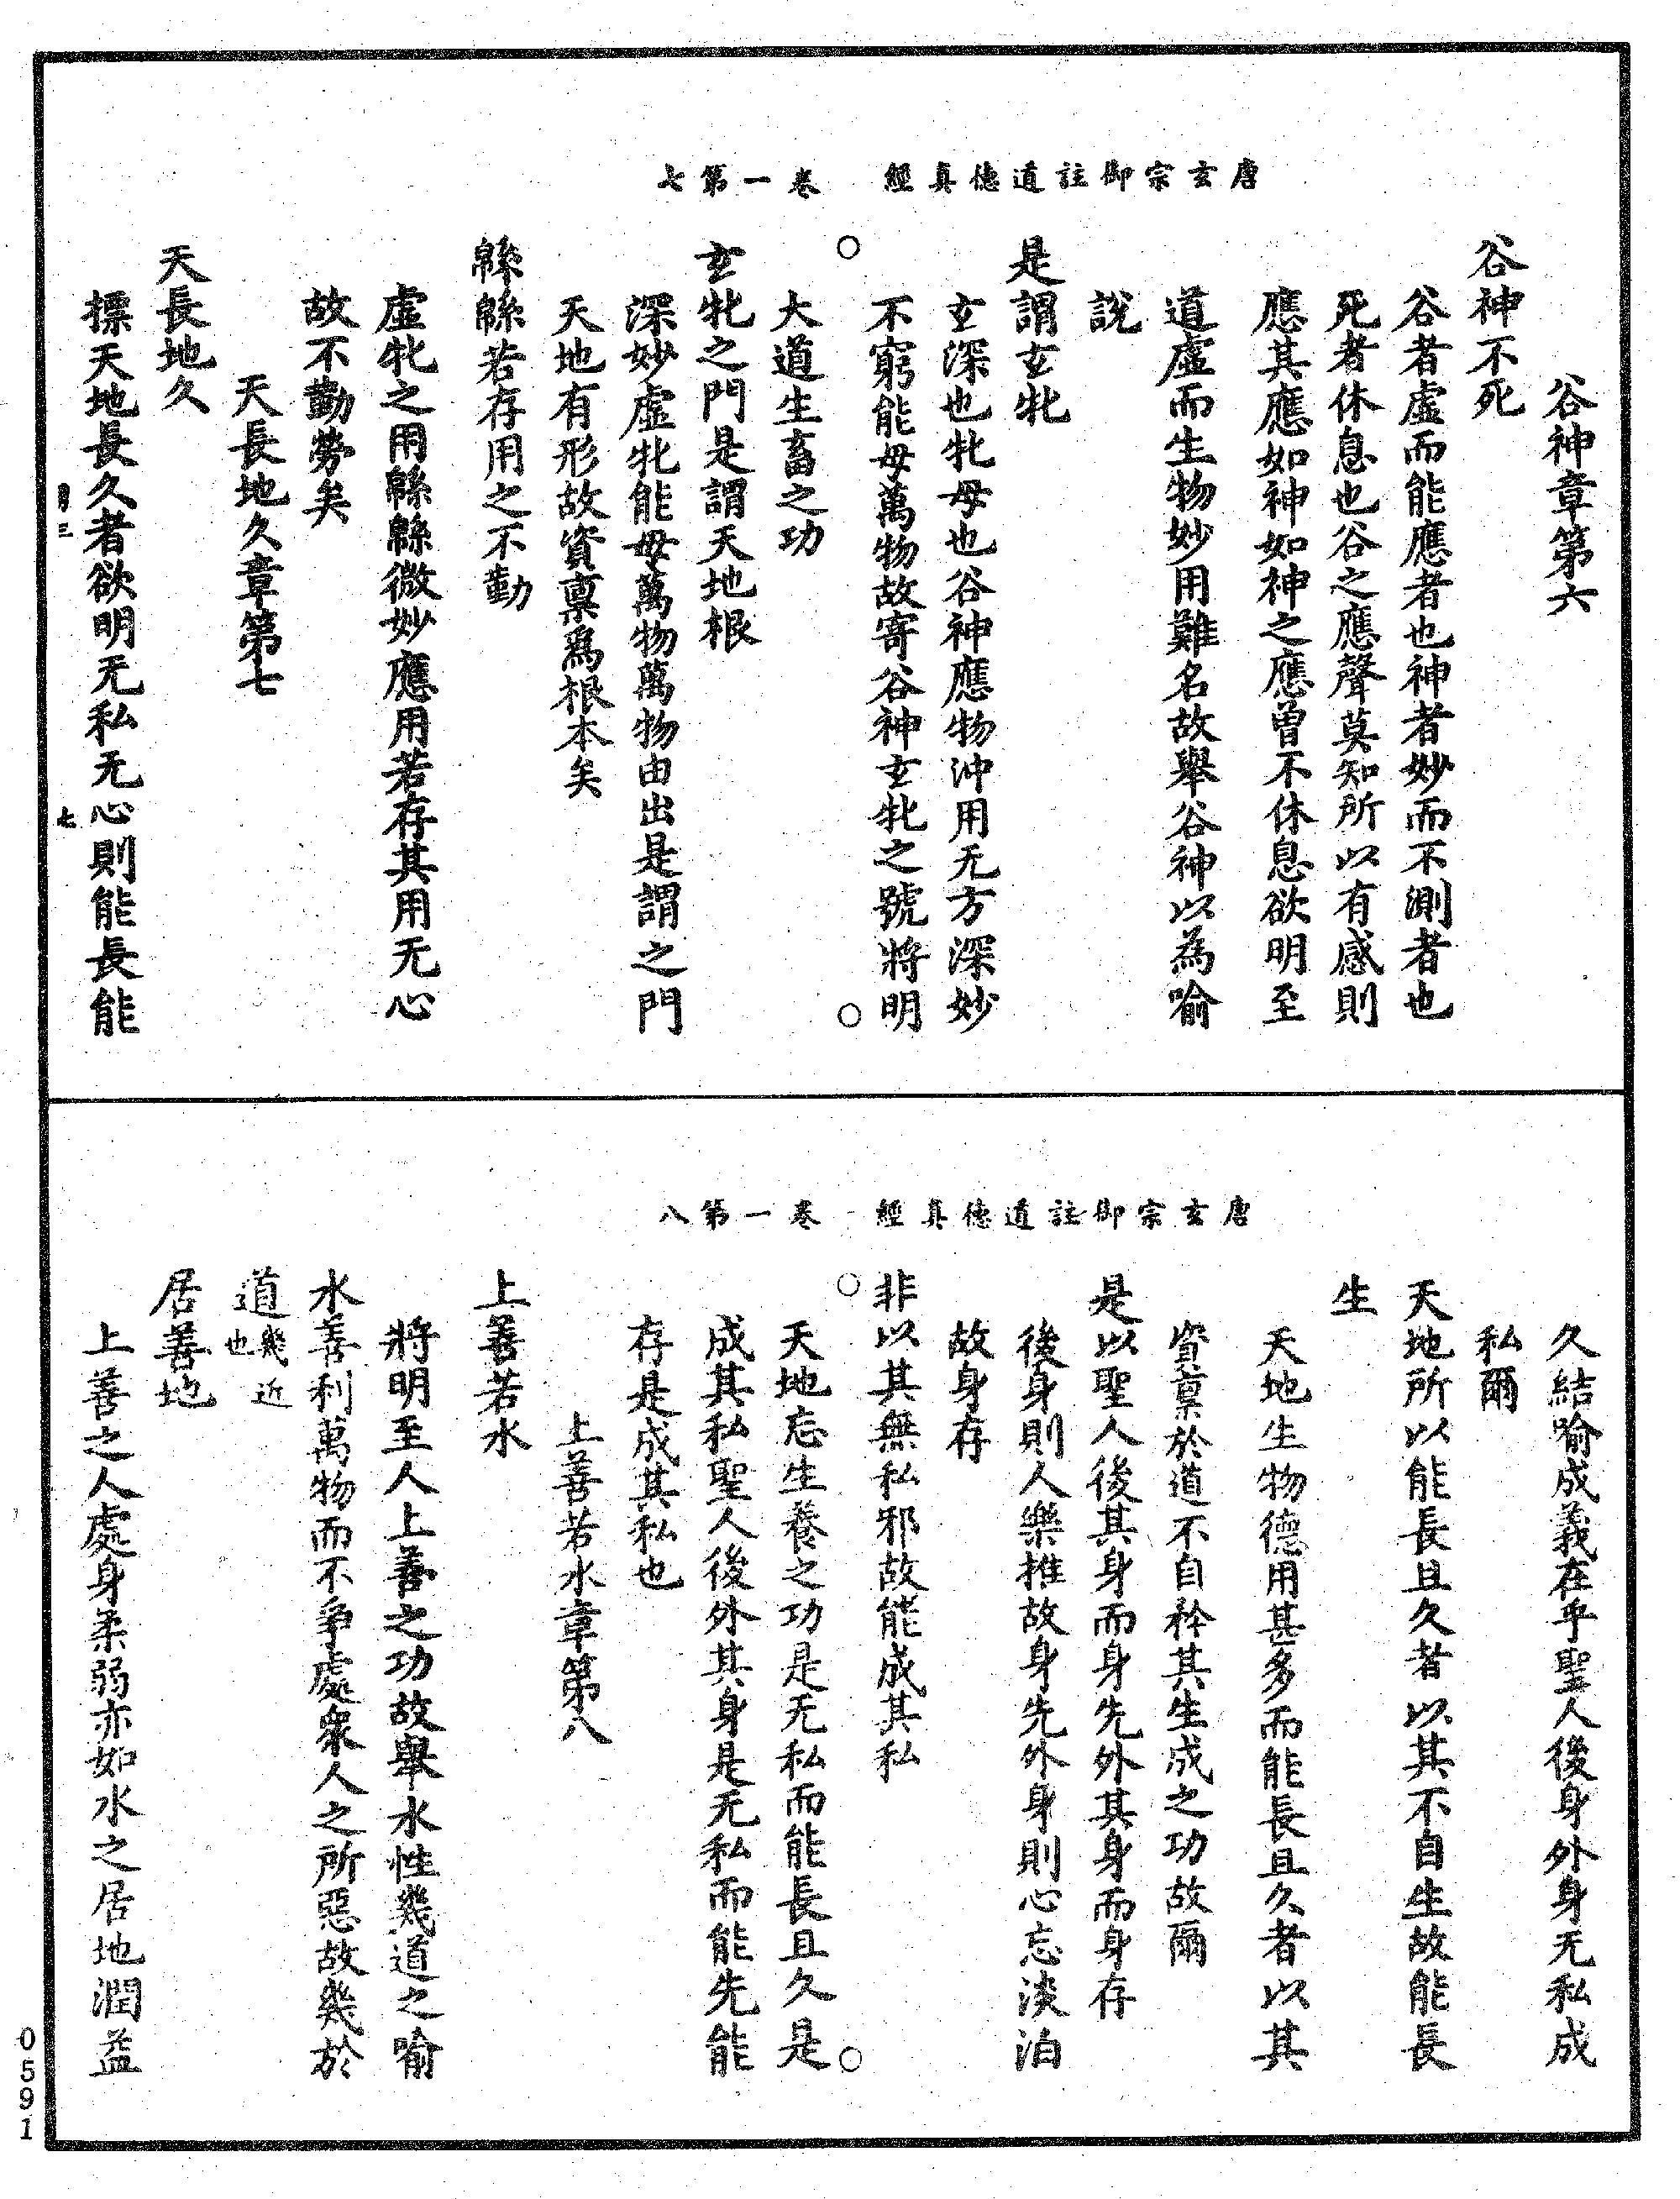 唐玄宗御註道德真經　卷一第七
谷神章第六
谷神不死
谷者虛而能應者也神者妙而不測者也
死者休息也谷之應聲莫知所以有感則
應其應如神如神之應曾不休息欲明至
道虛而生物妙用難名故舉谷神以為喻
說
是謂玄牝
玄深也牝母也谷神應物沖用无方深妙
不窮能母萬物故寄谷神玄牝之號將明
大道生畜之功
玄牝之門是謂天地根
深妙虛牝能母萬物萬物由出是謂之門
天地有形故資稟爲根本矣
緜緜若存用之不勤
虛牝之用緜緜微妙應用若存其用无心
故不勤勞矣
天長地久章第七
天長地久
摽天地長久者欲明无私无心則能長能
七
唐玄宗御註道德真經　卷一第八
久結喻成義在乎聖人後身外身无私成
私爾
天地所以能長且久者以其不自生故能長
生
天地生物德用甚多而能長且久者以其
資稟於道不自矜其生成之功故爾
是以聖人後其身而身先外其身而身存
後身則人樂推故身先外身則心忘淡泊
故身存
非以其無私邪故能成其私
天地忘生養之功是无私而能長且久是
成其私聖人後外其身是无私而能先能
存是成其私也
上善若水章第八
上善若水
將明至人上善之功故舉水性幾道之喻
水善利萬物而不爭處衆人之所惡故幾於
道幾近也
居善地
上善之人處身柔弱亦如水之居地潤益
0591